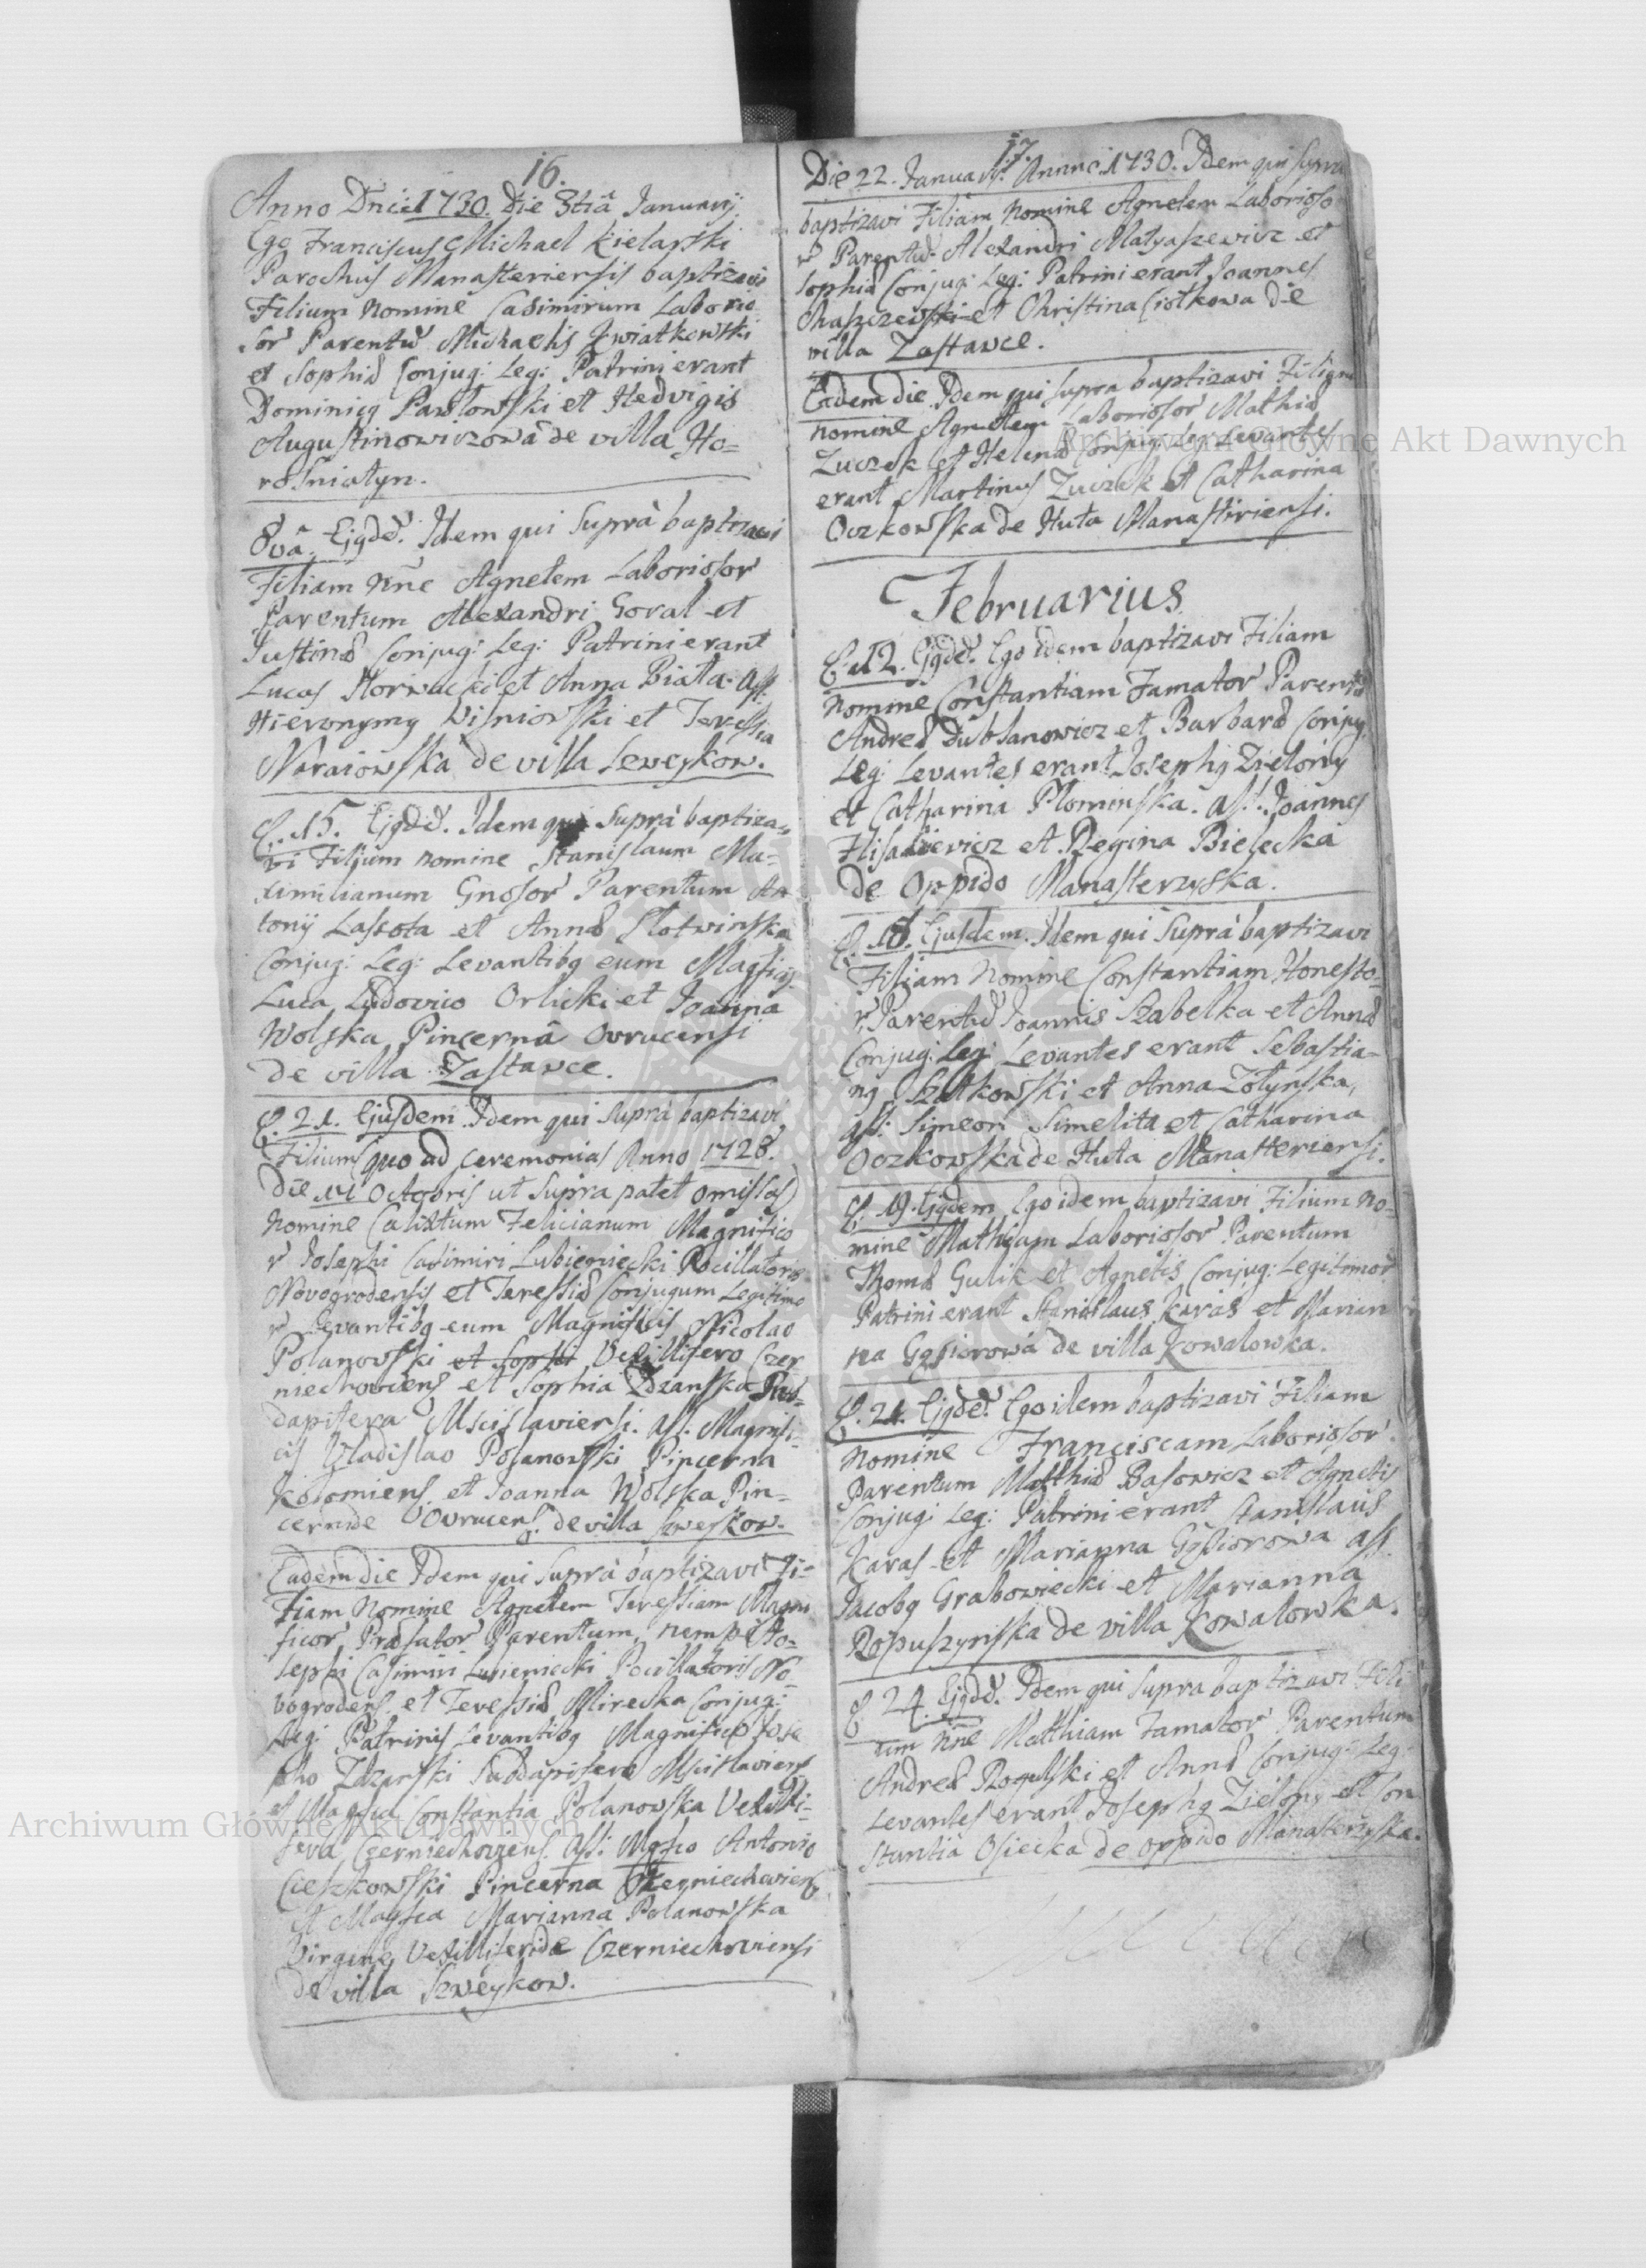 16.
Anno Dnie 1730. Die 3tiâ Januarij
Ego Franciscus Michael Kielarski
Parochus Manasteriensis baptizavi
Filium Nomine Casimirum Laborio-
sor Parentũ Michaelis Kwiatkowski
et Sophiæ Conjug: Leg: Patrini erant
Dominicq Pawłowski et Hedvigis
Augustinowiczowa de villa Ho-
rosniatyn.
8vâ Ejqdẽ. Idem qui Suprà baptizavi
Filiam Nñe Agnetem Laboriosor
Parentum Alexandri Goral et
Justinæ Conjug: Leg: Patrini erant
Lucas Horwacki et Anna Biała. Ass.
Hieronymq Wisniowski et Teressia
Naraiowska de villa Seweykow.
E. 15. Ejqdẽ. Idem qui Suprà baptiza-
vi Filium nomine Stanislaum Ma-
ximilianum Gnosor Parentum An
tonij Lassota et Annæ Słotwinska
Conjug: Leg: Levantibq eum Magficis
Luca Ludovico Orlicki et Joanna
Wolska Pincernâ Owrucensi
de villa Zastawce.
E. 21. Ejusdem. Idem qui Suprà baptizavi
Filium (quo ad ceremonias Anno 1728.
die 14 Octobris ut Supra patet omissas)
Nomine Calixtum Felicianum Magnifico
r Josephi Casimiri Lubieniecki Pocillatoris
Novogrodensis et Teressiæ Conjugum Legitimo
r Levantibq eum Magnificis Nicolao
Polanowski et Sophi Vexillifero Czer
niechowiens et Sophia Zdzanska Sub-
dapifera Mscislaviensi. Ass. Magnifi-
cis Vladislao Polanowski Pincerna
Kołomiens. et Joanna Wolska Pin-
cernide Owrucens. de villa Szweykow.
Eadem die Idem qui Suprà baptizavi Fi-
liam Nomine Agnetem Teressiam Magni
ficor Præfator Parentum, nempe Jo-
sephi Casimiri Lubieniecki Pocillatoris No-
vogrodens. et Teressiæ Mirecka Conjug:
Leg: Patrinis Levantibq Magnifico Jose
pho Zdzanski Subdapifero Mscislaviens
et Magfica Constantia Polanowska Vexilli-
fera Czerniechowiens. Ass: Mgfco Antonio
Cieszkowski Pincerna Czerniechowiens
et Magfca Marianna Polanowska
Virgine Vexilliferide Czerniechoviensi
de villa Szweykow.
17.
Die 22. Januarij. Anno 1730. Idem qui Supra
baptizavi Filiam Nomine Agnetem Laborioso
r Parentũ Alexandri Matyaszewicz et
Sophiæ Conjug: Leg: Patrini erant Joannes
Chaszczewski et Christina Ciołkowa de
villa Zastawce.
Eadem die Idem qui Supra baptizavi Filiam
nomine Agnetem Laboriosor Mathiæ
Zuczek et Helenæ Conjug: Leg: Levantes
erant Martinus Zuczek et Catharina
Oczkowska de Huta Manastiriensi.
Februarius
E. 12. Ejqdẽ. Ego idem baptizavi Filiam
nomine Constantiam Famator Parentũ
Andreæ Dublanowicz et Barbaræ Conjug.
Leg: Levantes erant Josephq Zielony
et Catharina Płominska. Ass. Joannes
et Regina Bielecka
de Oppido Manasterzyska.
E. Ejusdem. Idem qui Suprà baptizavi
Filiam Nomine Constantiam Honesto-
r Parentũ Joannis Szabelka et Annæ
Conjug: Leg: Levantes erant Sebastia-
nq et Anna Zołynska,
Ass: Simeon Simelita et Catharina
Oczkowska de Huta Manasteriensi.
E. 19. Ejqdem Ego idem baptizavi Filium No-
mine Mathiam Laboriosor Parentum
Thomæ Gulik et Agnetis Conjug: Legitimor
Patrini erant Stanislaus Karas et Marian
na Gąsiorowa de villa Kowalowka.
E. 21. Ejqdẽ. Ego idem baptizavi Filiam
Nomine Franciscam Laboriosor
Parentum Matthiæ Basowicz et Agnetis
Conjug: Leg: Patrini erant Stanislaus
Karas et Marianna Gąsiorowa Ass.
Jacobq Grabowiecki et Marianna
Ropuszynska de villa Kowalowka.
E. 24. Ejqdẽ. Idem qui Supra baptizavi Fili
um Nñe Matthiam Famator Parentum
Andreæ Rogulski et Annæ Conjug: Leg:
Levantes erant Josephq Zielony et Con
stantia Osiecka de oppido Manasterzyska.
Archiwum Główne Akt Dawnych
Archiwum Główne Akt Dawnych